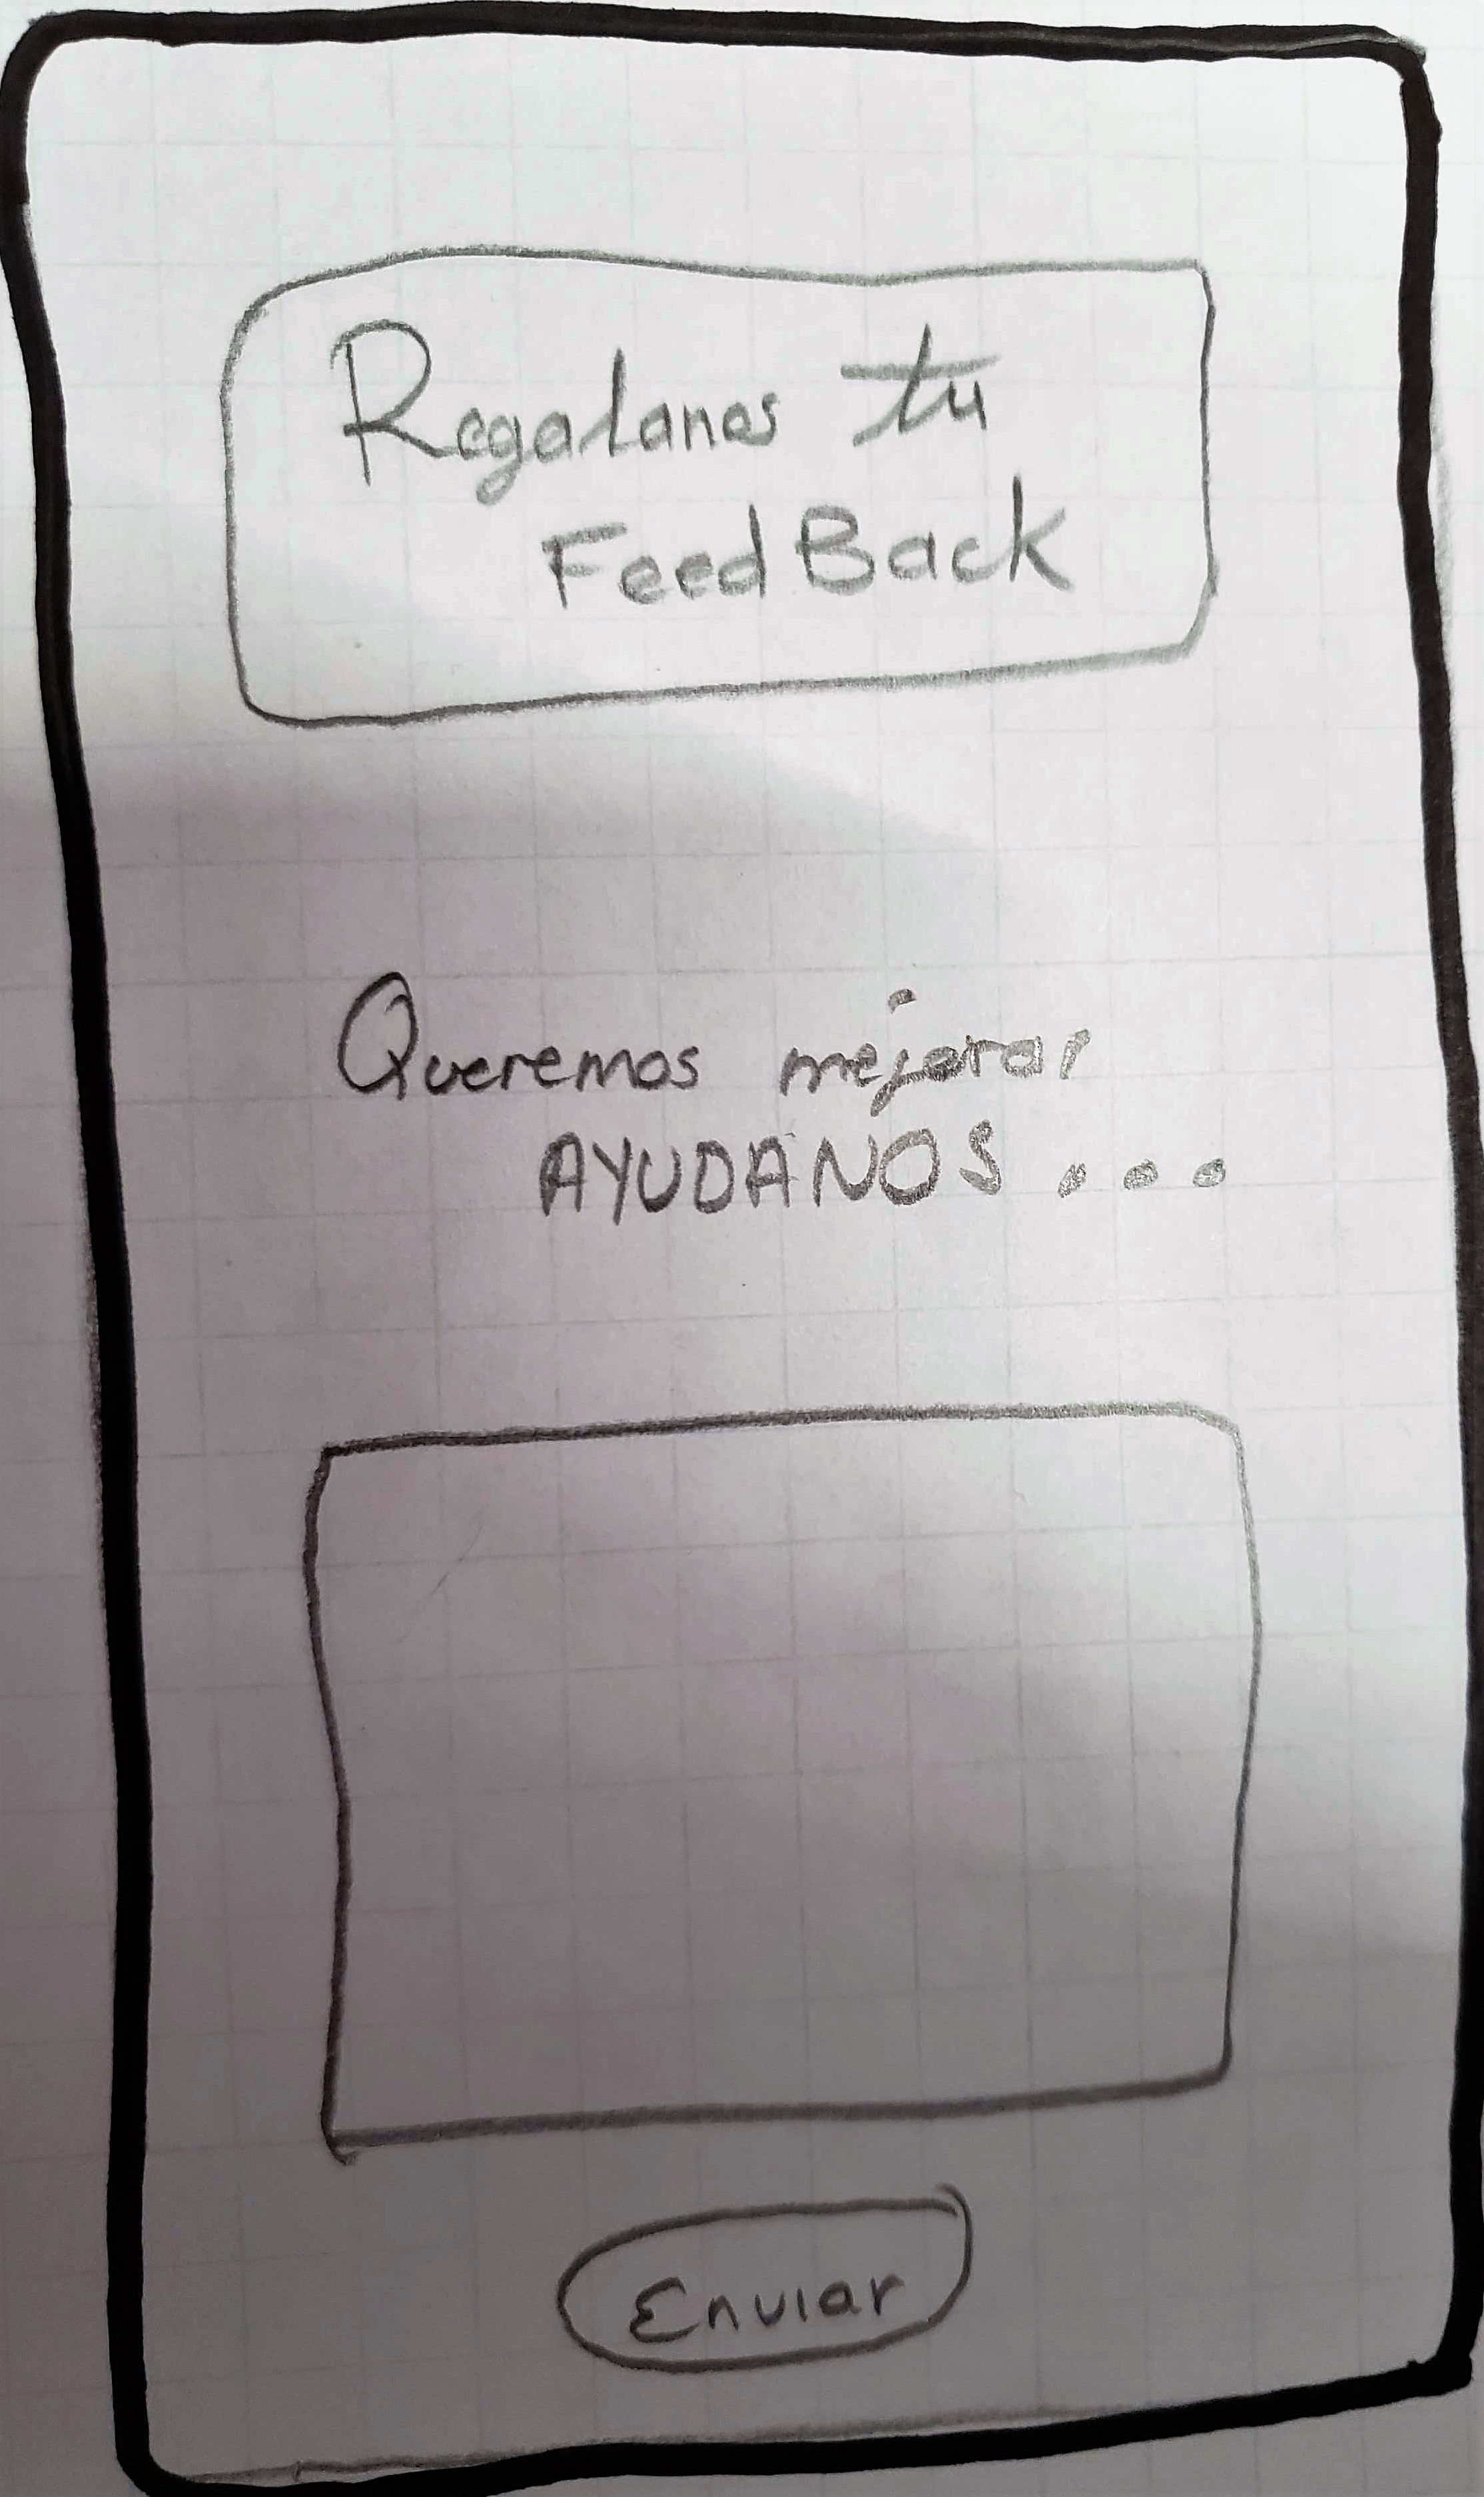 Regalanos tu
FeedBack
Queremos mejorar
AYUDANOS...
Enviar